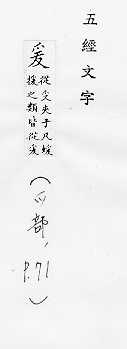 五經文字
爰
從𠬪夫于凡蝯
援之類皆從爰
(爫部, P.71)